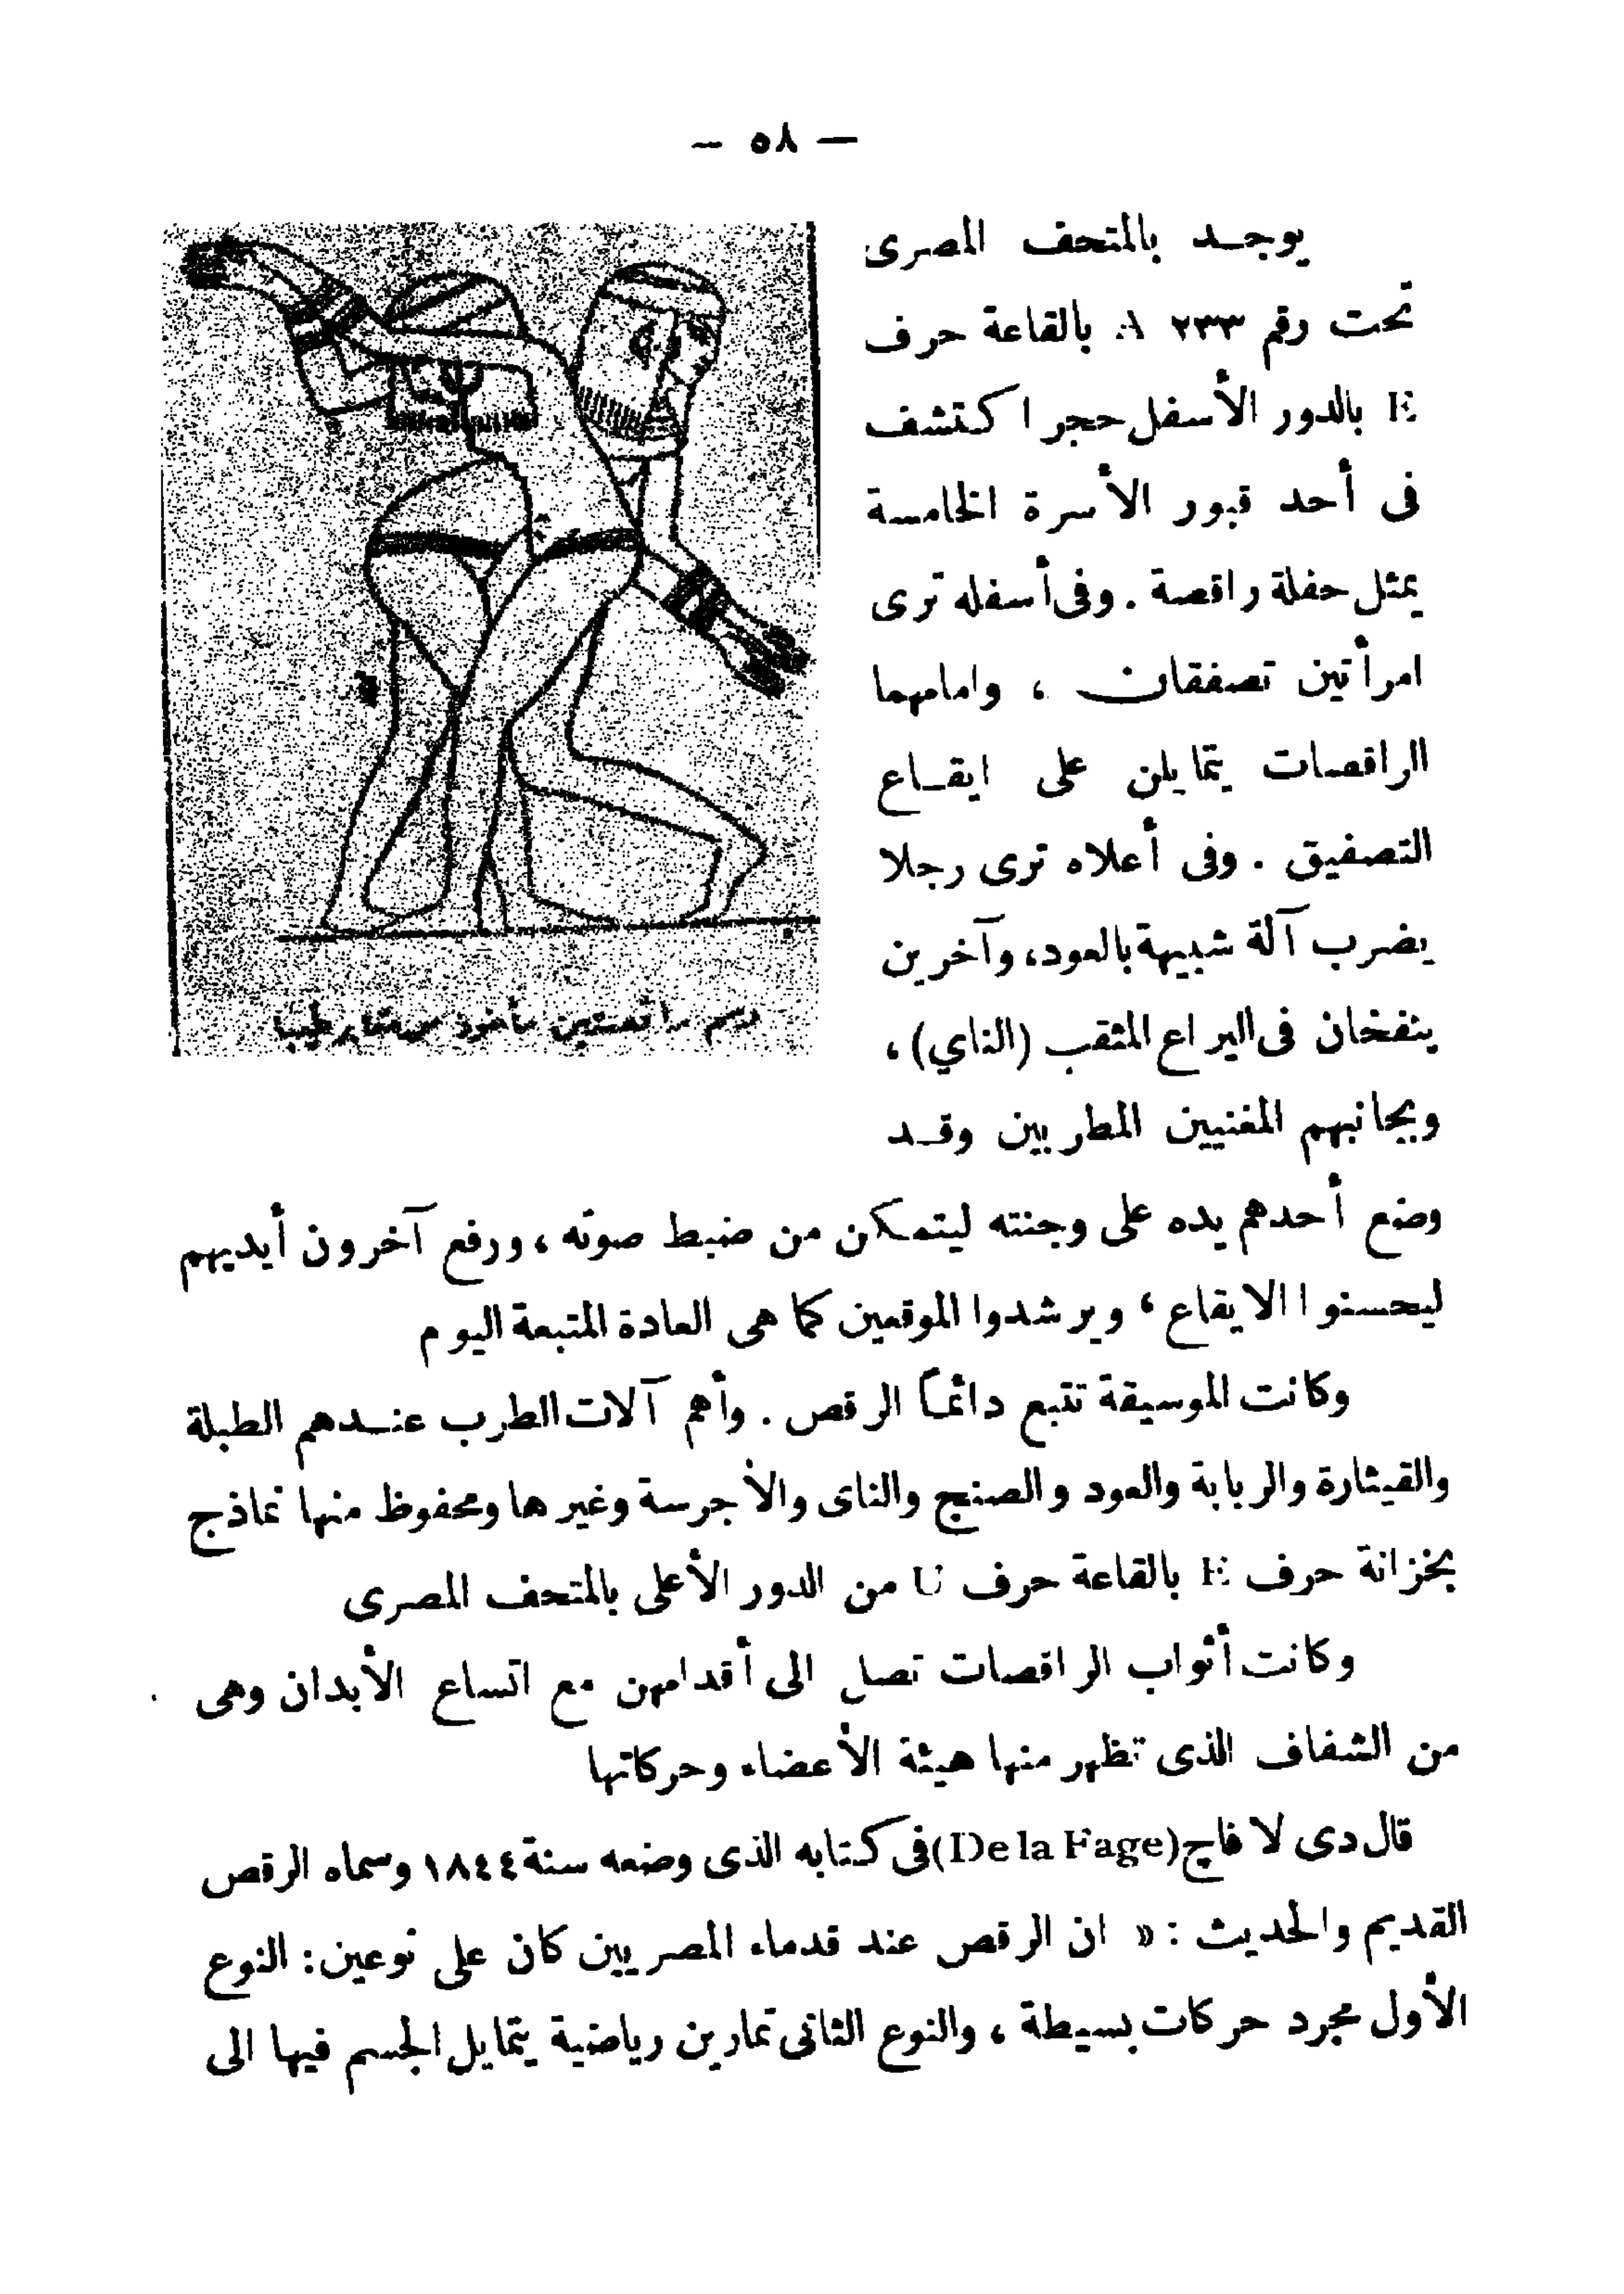 — ٥٨ —
يوجد بالمتحف المصرى
تحت رقم ٢٣٣ A بالقاعة حرف
E بالدور الأسفل حجرا اكتشف
فى أحد قبور الأسرة الخامسة
يمثل حفلة راقصة . وفى أسفله ترى
امرأتين تصفقان ، وامامهما
الراقصات يتمايلن على ايقاع
التصفيق . وفى أعلاه ترى رجلا
يضرب آلة شبيهة بالعود، وآخرين
ينفخان فى اليراع المثقب (الناي) ،
وبجانبهم المغنيين المطربين وقد
رسم راقصتين مأخوذ من مقابر طيبا
وضع أحدهم يده على وجنته ليتمكن من ضبط صوته ، ورفع آخرون أيديهم
ليحسنوا الايقاع ، ويرشدوا الموقعين كما هى العادة المتبعة اليوم
وكانت الموسيقة تتبع دائماً الرقص . وأهم آلات الطرب عندهم الطبلة
والقيثارة والربابة والعود والصنج والناى والأجرسة وغيرها ومحفوظ منها نماذج
بخزانة حرف E بالقاعة حرف U من الدور الأعلى بالمتحف المصرى
وكانت أثواب الراقصات تصل الى أقدامهن مع اتساع الأبدان وهى
من الشفاف الذى تظهر منها هيئة الأعضاء وحركاتها
قال دى لا فاج (De la Fage) فى كتابه الذى وضعه سنة ١٨٤٤ وسماه الرقص
القديم والحديث : « ان الرقص عند قدماء المصريين كان على نوعين : النوع
الأول مجرد حركات بسيطة ، والنوع الثانى تمارين رياضية يتمايل الجسم فيها الى